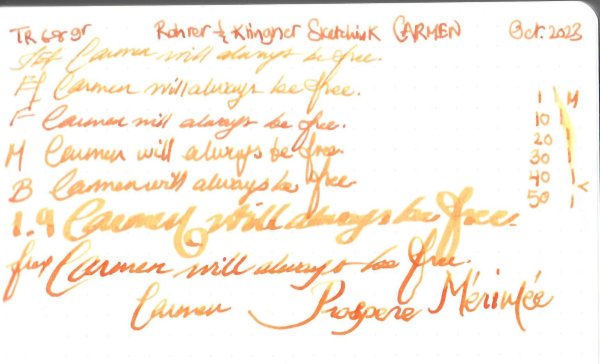 TR 68gr Rohrer & Klingner Sketchink CARMEN Oct. 2023
Carmen will always be free.
EF Carmen will always be free.
F Carmen will always be free.
M Carmen will always be free.
B Carmen will always be free.
1.9 Carmen will always be free.
flex Carmen will always be free.
Carmen Prospere Mérimée
1 M
10
20
30
40
50